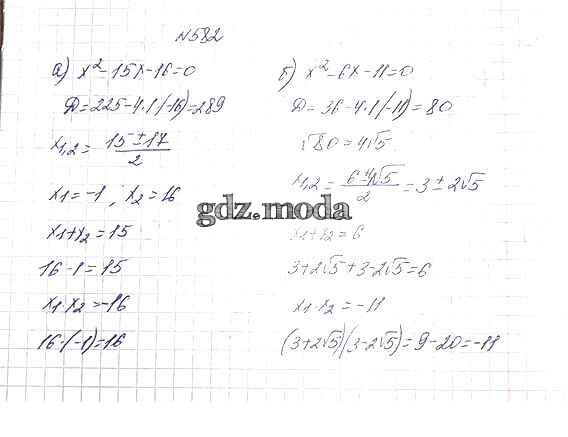 №582
а) x² - 15x - 16 = 0
D = 225 - 4·1·(-16) = 289
x₁,₂ = (15 ± 17)/2
x₁ = -1, x₂ = 16
x₁ + x₂ = 15
16 - 1 = 15
x₁·x₂ = -16
16·(-1) = 16
б) x² - 6x - 11 = 0
D = 36 - 4·1·(-11) = 80
√80 = 4√5
x₁,₂ = (6 ± 4√5)/2 = 3 ± 2√5
x₁ + x₂ = 6
3 + 2√5 + 3 - 2√5 = 6
x₁·x₂ = -11
(3 + 2√5)(3 - 2√5) = 9 - 20 = -11
gdz.moda